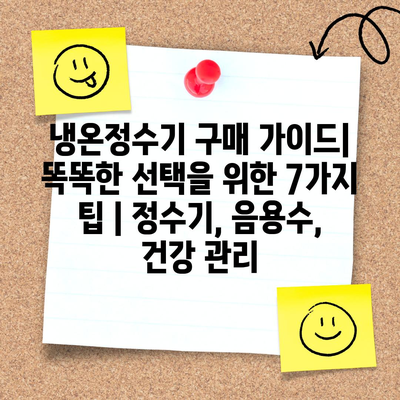 냉온정수기 구매 가이드|
똑똑한 선택을 위한 7가지
팁 | 정수기, 음용수,
건강 관리